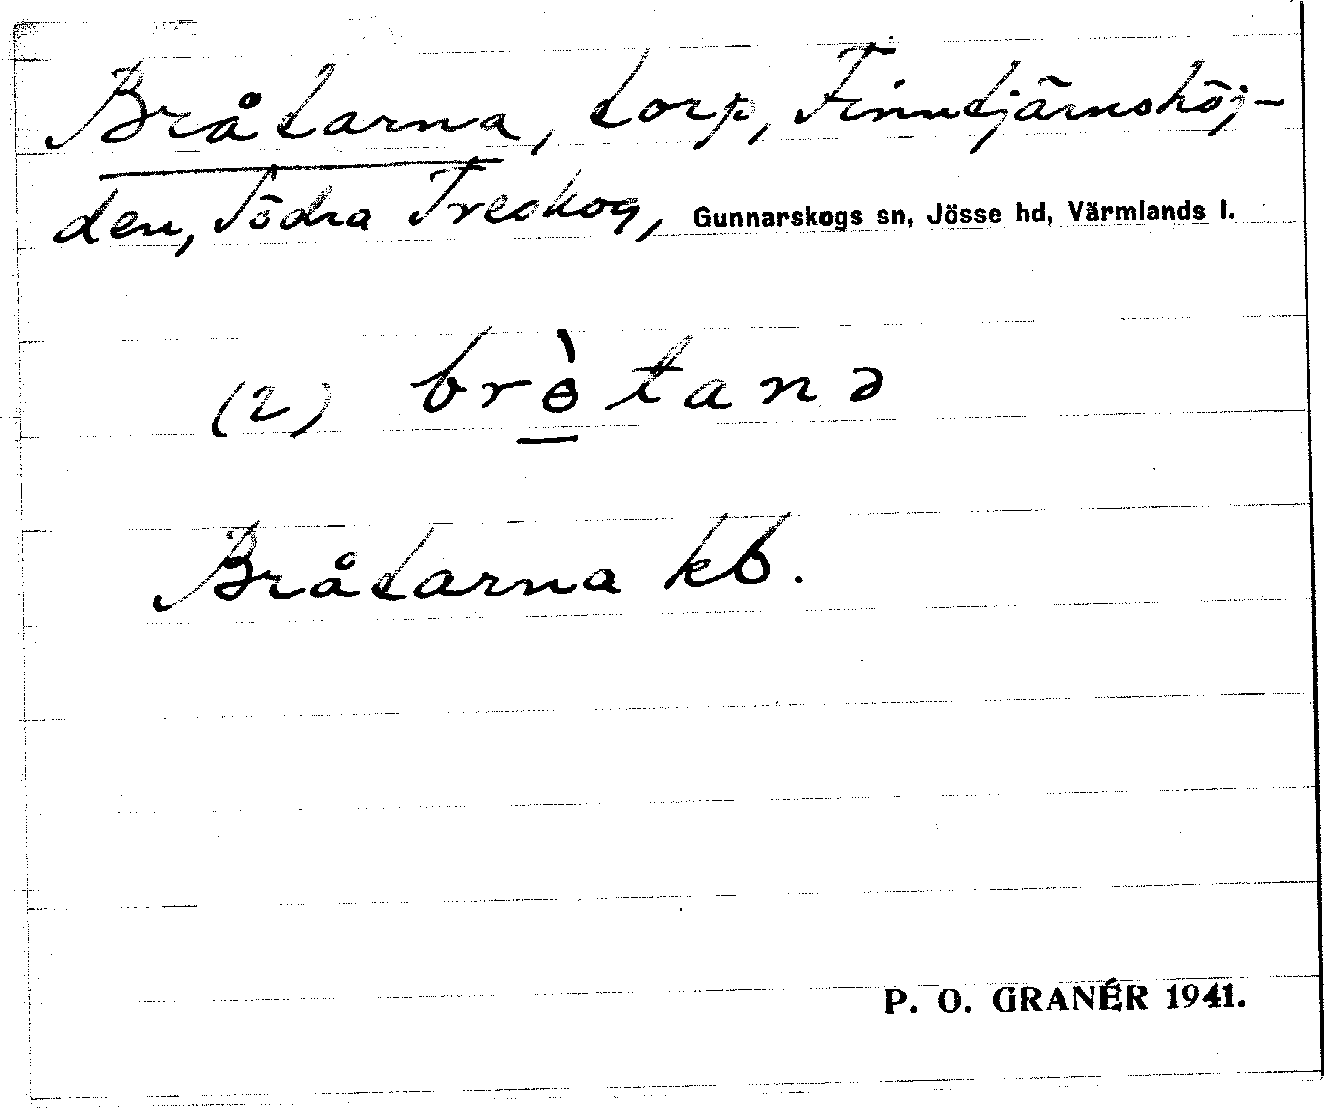 Bråtarna, torp, Finntjärnshöj-
den, Södra Treskog, Gunnarskogs sn, Jösse hd, Värmlands l.
(2) brɵ̠̀tanə
Bråtarna kb.
P. O. GRANÉR 1941.